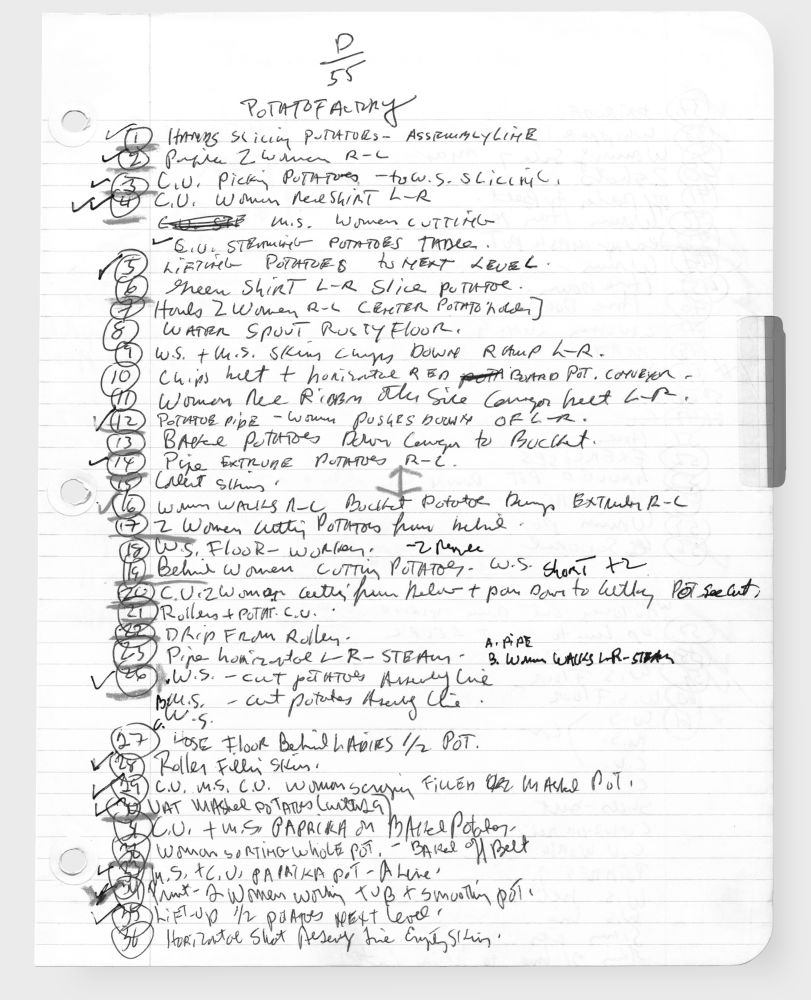 D
55
POTATO FACTORY
1 HANDS SLICING POTATOES - ASSEMBLY LINE
2 2 Women R-L
3 C.U. Picking POTATOES - to W.S. SLICING.
4 C.U. Women Red SHIRT L-R
M.S. Women CUTTING
C.U. STEAMING POTATOES TABLE.
5 LIFTING POTATOES to NEXT LEVEL.
6 Green SHIRT L-R Slice POTATOE.
7 Hands 2 Women R-L CENTER POTATO holder]
8 WATER SPOUT RUSTY FLOOR.
9 W.S. + M.S. SKINS DOWN RAMP L-R.
10 Chips belt + horizontal RED BOARD POT. CONVEYER.
11 Woman Red Ribbon Other Side Conveyor belt L-R.
12 POTATOE PIPE - Women PUSHES DOWN OF L-R.
13 BAKED POTATOES Down Conveyor to BUCKET.
14 Pipe EXTRUDE POTATOES R-L.
15 Collect Skins.
16 Woman WALKS R-L Bucket Potatoe Dump EXTRUDER R-L
17 2 Women cutting POTATOES from behind.
18 W.S. FLOOR - Workers. -2
19 Behind Women CUTTING POTATOES - W.S. SHORT +2
20 C.U. 2 Woman cutting from below + pan down to cutting POT
21 Rollers + POTAT. C.U.
22 DRIP FROM Roller.
23 Pipe horizontal L-R - STEAM - A. PIPE
B. Woman WALKS L-R - STEAM
26 W.S. - cut POTATOES Assembly Line
B. M.S. - cut potatoes Assembly Line.
C. W.S.
27 HOSE FLOOR Behind LADIES 1/2 POT.
28 Roller Filled Skins.
29 C.U. M.S. C.U. Woman scraping FILLED MASHED POT.
30 VAT MASHED POTATOES (cutting)
31 C.U. + M.S. PAPRIKA on BAKED Potatoes.
32 Woman SORTING WHOLE POT. - BAKED Off Belt
33 M.S. + C.U. PAPRIKA POT - A Line.
34 2 Women working TUB + smoothing pot.
35 LIFT-UP 1/2 POTATOES NEXT Level.
36 HORIZONTAL Shot Assembly Line Empty Skins.